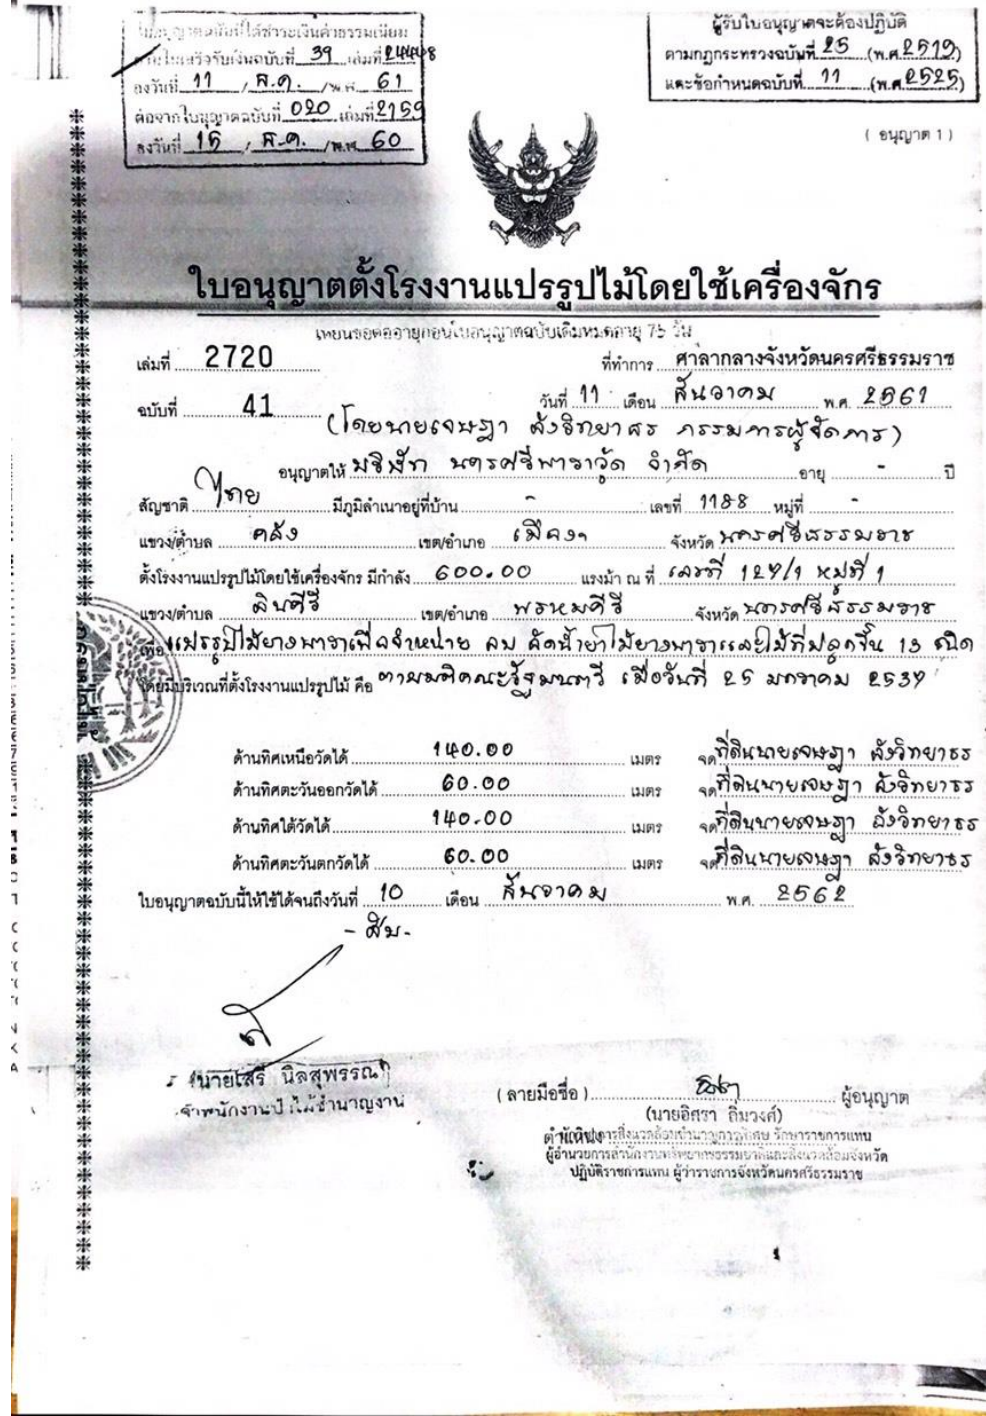 ใบอนุญาตฉบับนี้ได้ชำระเงินค่าธรรมเนียม
ตามใบเสร็จรับเงินฉบับที่ 39 เล่มที่ 24448
ลงวันที่ 11 / ธ.ค. / พ.ศ. 61
ต่อจากใบอนุญาตฉบับที่ 020 เล่มที่ 2159
ลงวันที่ 15 / ธ.ค. / พ.ศ. 60
ผู้รับใบอนุญาตจะต้องปฏิบัติ
ตามกฎกระทรวงฉบับที่ 25 (พ.ศ. 2519)
และข้อกำหนดฉบับที่ 11 (พ.ศ. 2525)
( อนุญาต 1 )
ใบอนุญาตตั้งโรงงานแปรรูปไม้โดยใช้เครื่องจักร
ขอต่ออายุก่อนใบอนุญาตฉบับเดิมหมดอายุ 75 วัน
เล่มที่ 2720 ที่ทำการ ศาลากลางจังหวัดนครศรีธรรมราช
ฉบับที่ 41 วันที่ 11 เดือน ธันวาคม พ.ศ. 2561
(โดยนายเจษฎา สังวิทยาธร กรรมการผู้จัดการ)
อนุญาตให้ บริษัท นครศรีพาราวู้ด จำกัด อายุ - ปี
สัญชาติ ไทย มีภูมิลำเนาอยู่ที่บ้าน - เลขที่ 1188 หมู่ที่ -
แขวง/ตำบล คลัง เขต/อำเภอ เมืองฯ จังหวัด นครศรีธรรมราช
ตั้งโรงงานแปรรูปไม้โดยใช้เครื่องจักร มีกำลัง 600.00 แรงม้า ณ ที่ เลขที่ 127/1 หมู่ที่ 1
แขวง/ตำบล อินคีรี เขต/อำเภอ พรหมคีรี จังหวัด นครศรีธรรมราช
เพื่อ แปรรูปไม้ยางพาราเพื่อจำหน่าย อบ อัดน้ำยาไม้ยางพาราและไม้ที่ปลูกขึ้น 13 ชนิด
โดยมีบริเวณที่ตั้งโรงงานแปรรูปไม้ คือ ตามมติคณะรัฐมนตรี เมื่อวันที่ 25 มกราคม 2537
ด้านทิศเหนือวัดได้ 140.00 เมตร จด ที่ดินนายเจษฎา สังวิทยาธร
ด้านทิศตะวันออกวัดได้ 60.00 เมตร จด ที่ดินนายเจษฎา สังวิทยาธร
ด้านทิศใต้วัดได้ 140.00 เมตร จด ที่ดินนายเจษฎา สังวิทยาธร
ด้านทิศตะวันตกวัดได้ 60.00 เมตร จด ที่ดินนายเจษฎา สังวิทยาธร
ใบอนุญาตฉบับนี้ให้ใช้ได้จนถึงวันที่ 10 เดือน ธันวาคม พ.ศ. 2562
(นายเสรี นิลสุพรรณ)
เจ้าพนักงานป่าไม้ชำนาญงาน
( ลายมือชื่อ ) ผู้อนุญาต
(นายอิศรา ถิ่มวงศ์)
ผู้อำนวยการสำนักงานทรัพยากรธรรมชาติและสิ่งแวดล้อมจังหวัด
ปฏิบัติราชการแทน ผู้ว่าราชการจังหวัดนครศรีธรรมราช